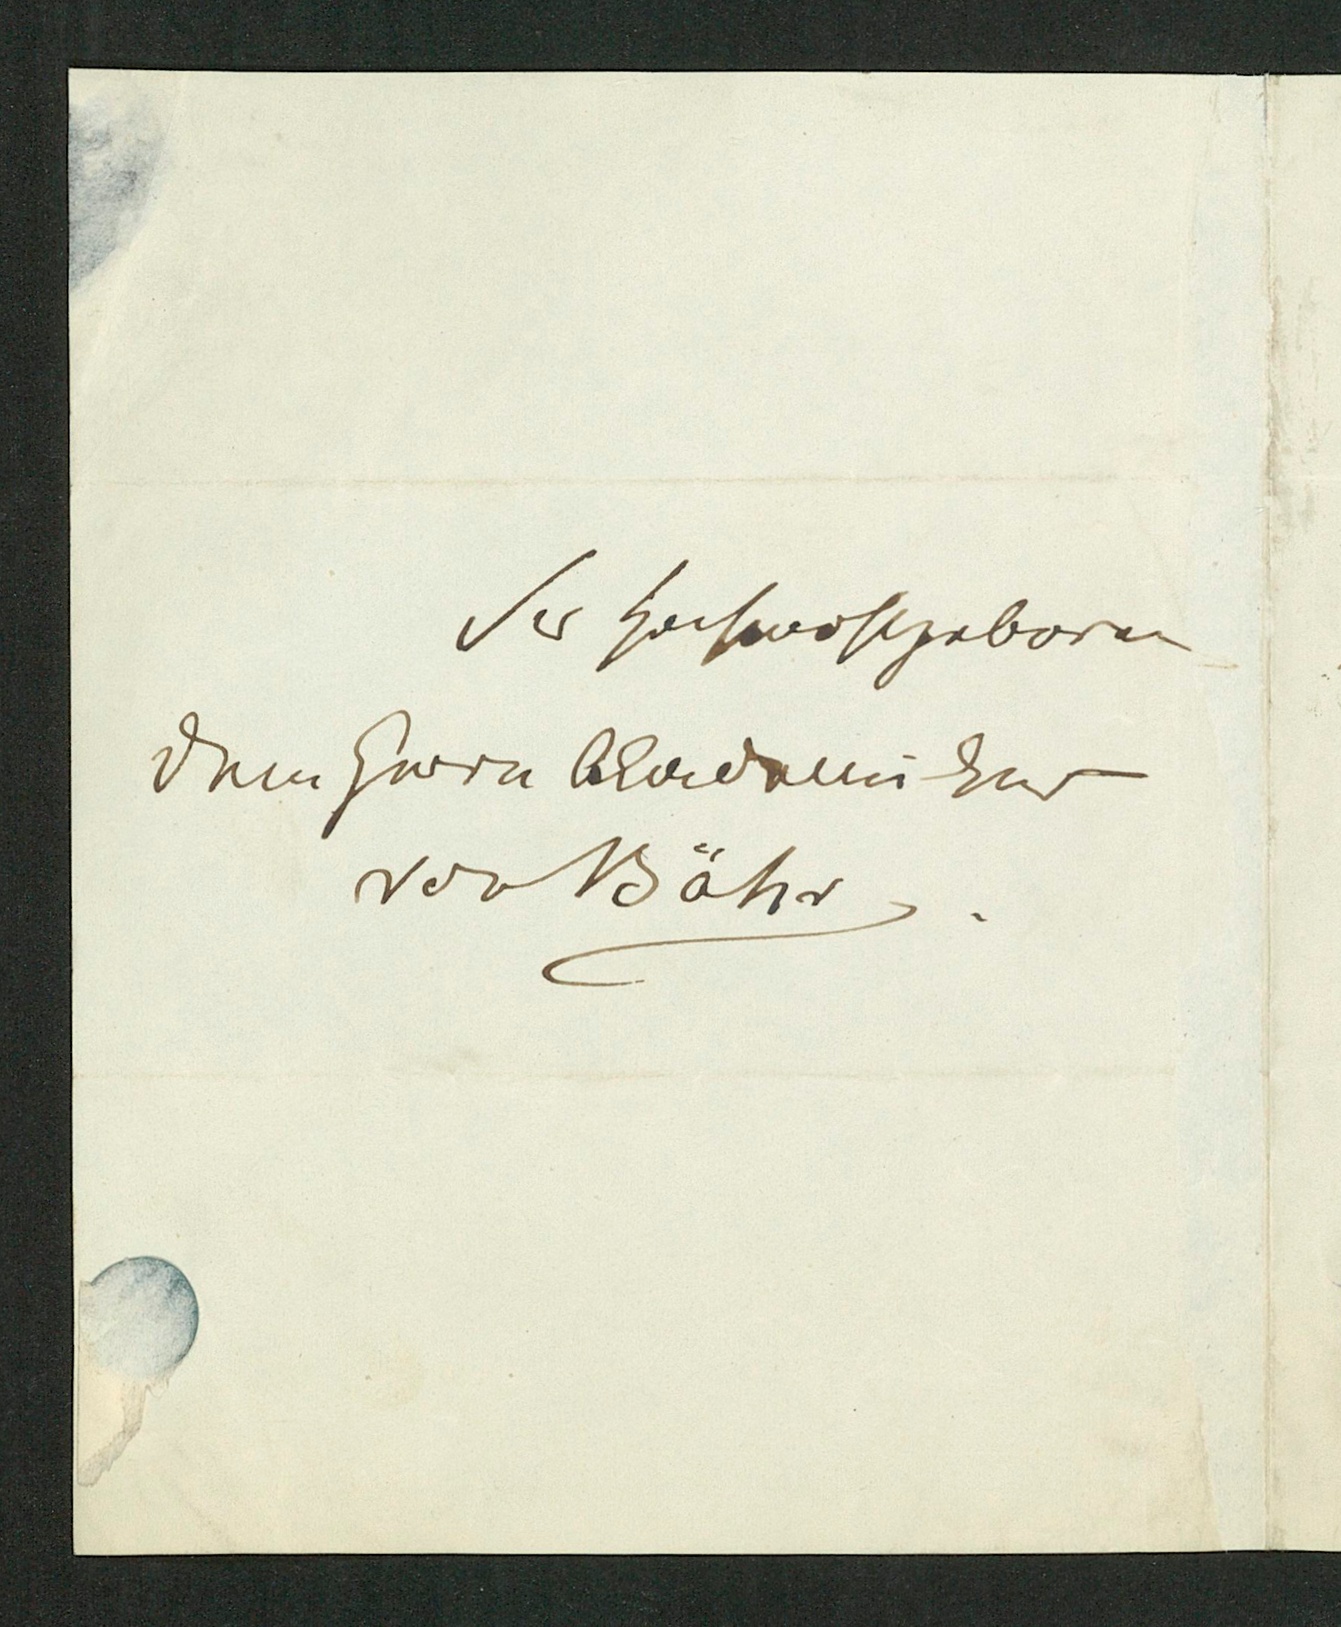 Sr Hochwohlgeboren
dem Herrn Akademiker
von Bähr.